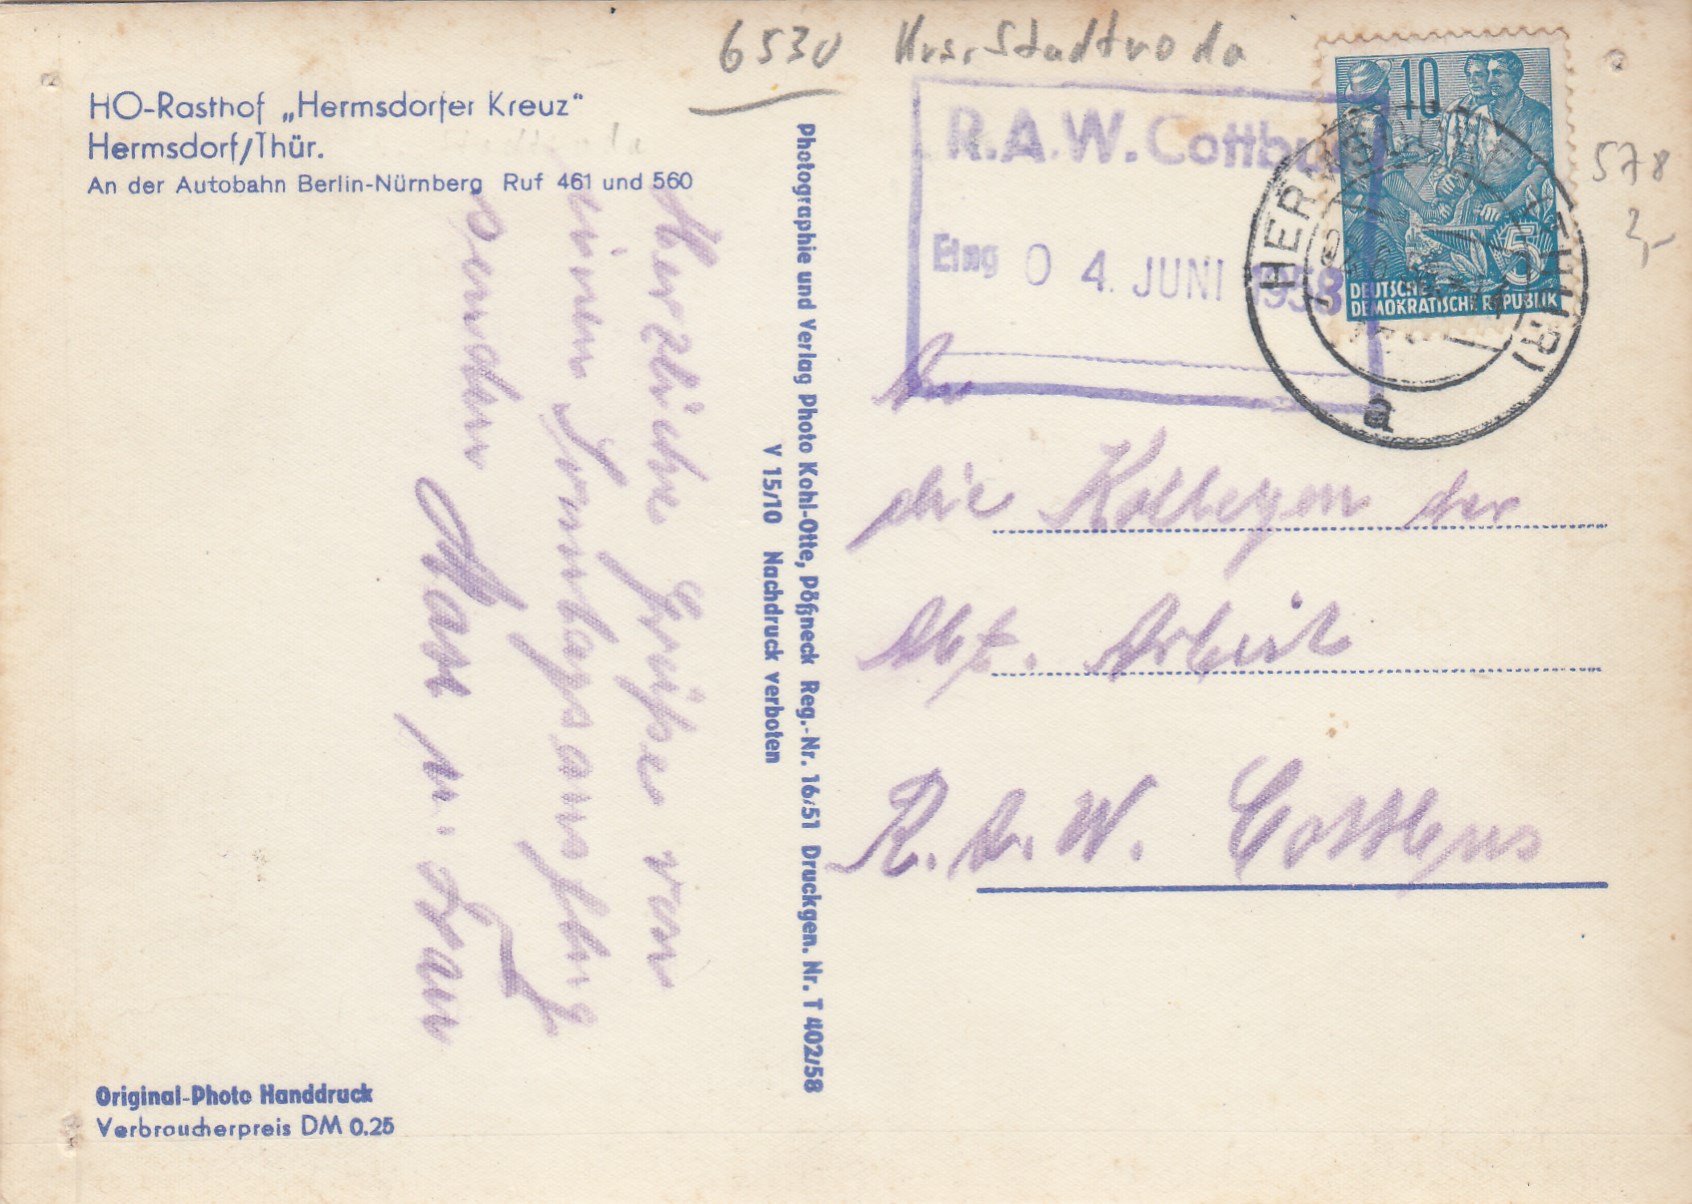 6530 Krs. Stadtroda
HO-Rasthof „Hermsdorfer Kreuz“
Hermsdorf/Thür.
An der Autobahn Berlin-Nürnberg Ruf 461 und 560
Herzliche Grüße von
einem Sonntagsausflug
senden
Max u. Frau
Original-Photo Handdruck
Verbraucherpreis DM 0.25
Photographie und Verlag Photo Kohl-Otte, Pößneck Reg.-Nr. 16/51 Druckgen. Nr. T 402/58
V 15/10 Nachdruck verboten
R.A.W. Cottbus
Eing 04. JUNI 1958
10
5
DEUTSCHE
DEMOKRATISCHE REPUBLIK
a
578
2,-
An
die Kollegen der
Abt. Arbeit
R.A.W. Cottbus